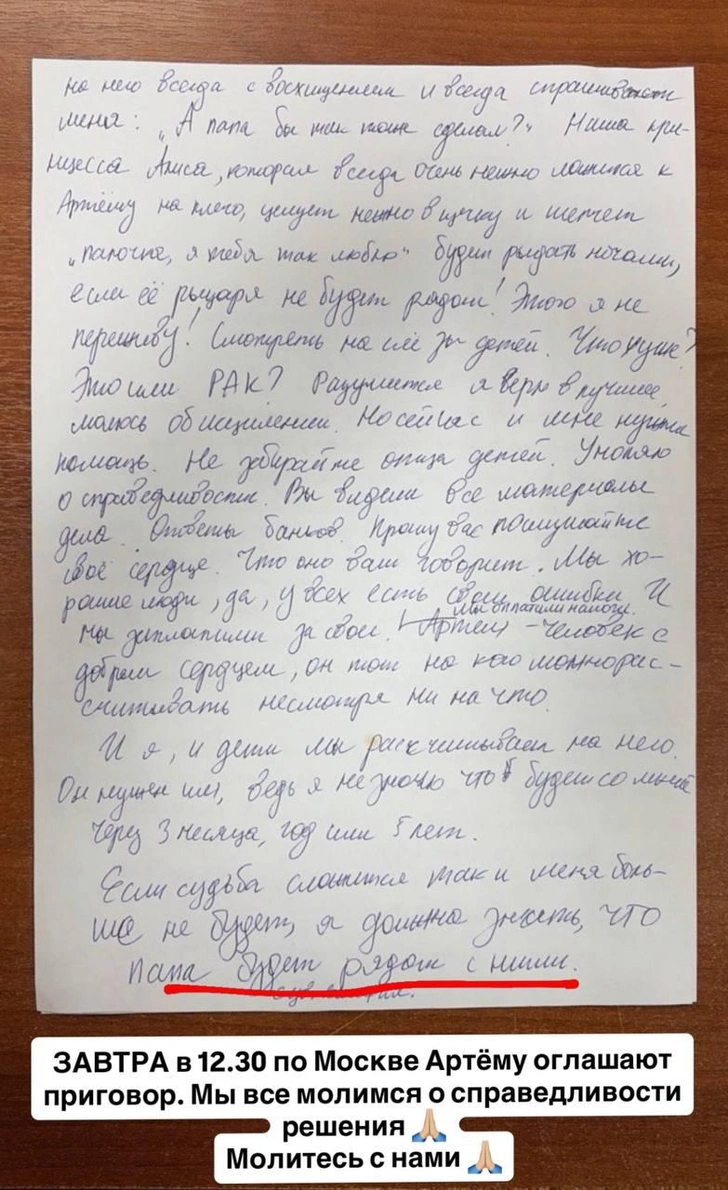 на него всегда с восхищением и всегда спрашивает
меня: „А папа бы так тоже сделал?" Наша прин-
цесса Алиса, которая всегда очень нежно ложится к
Артёму на плечо, целует нежно в щечку и шепчет
„папочка, я тебя так люблю" будет рыдать ночами,
если её рыцаря не будет рядом! Этого я не
переживу! Смотреть на слёзы детей. Что хуже?
Это или РАК? Разумеется я верю в лучшее,
молюсь об исцелении. Но сейчас и мне нужна
помощь. Не забирайте отца детей. Умоляю
о справедливости. Вы видели все материалы
дела. Ответы банков. Прошу вас послушайте
своё сердце. Что оно вам говорит. Мы хо-
рошие люди, да, у всех есть свои ошибки. И
мы оплатили налоги.
мы заплатили за свои. Артём - человек с
добрым сердцем, он тот на кого можно рас-
считывать несмотря ни на что.
И я, и дети мы рассчитываем на него.
Он нужен им, ведь я не знаю что будет со мной
через 3 месяца, год или 5 лет.
Если судьба сложится так и меня боль-
ше не будет, я должна знать, что
папа будет рядом с ними.
ЗАВТРА в 12.30 по Москве Артёму оглашают
приговор. Мы все молимся о справедливости
решения 🙏🏼
Молитесь с нами 🙏🏼